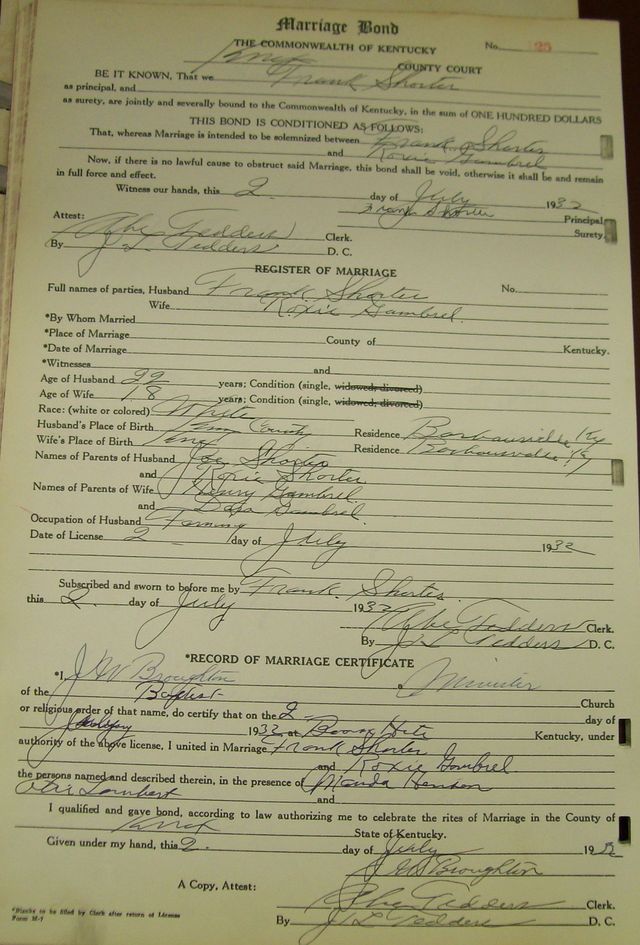 Marriage Bond
THE COMMONWEALTH OF KENTUCKY No. 25
Knox COUNTY COURT
BE IT KNOWN, That we Frank Shorter
as principal, and
as surety, are jointly and severally bound to the Commonwealth of Kentucky, in the sum of ONE HUNDRED DOLLARS
THIS BOND IS CONDITIONED AS FOLLOWS:
That, whereas Marriage is intended to be solemnized between Frank Shorter
and Roxie Gambrel
Now, if there is no lawful cause to obstruct said Marriage, this bond shall be void, otherwise it shall be and remain
in full force and effect.
Witness our hands, this 2 day of July 1932
Frank Shorter Principal
Attest: Surety.
Abe Tedders Clerk.
By J. L. Tedders D. C.
REGISTER OF MARRIAGE
Full names of parties, Husband Frank Shorter No.
Wife Roxie Gambrel
*By Whom Married
*Place of Marriage County of Kentucky.
*Date of Marriage
*Witnesses and
Age of Husband 22 years; Condition (single, widowed; divorced)
Age of Wife 18 years; Condition (single, widowed; divorced)
Race: (white or colored) White
Husband's Place of Birth County Residence Barbourville Ky
Wife's Place of Birth Residence Barbourville Ky
Names of Parents of Husband Joe Shorter
and Roxie Shorter
Names of Parents of Wife Henry Gambrel
and Dora Gambrel
Occupation of Husband Farming
Date of License 2 day of July 1932
Subscribed and sworn to before me by Frank Shorter
this 2 day of July 1932
Abe Tedders Clerk.
By J L Tedders D. C.
*RECORD OF MARRIAGE CERTIFICATE
*I, J W Broughton a Minister
of the Baptist Church
or religious order of that name, do certify that on the 2 day of
July 1932 at Kentucky, under
authority of the above license, I united in Marriage Frank Shorter
and Roxie Gambrel
the persons named and described therein, in the presence of Henson
Lambert and
I qualified and gave bond, according to law authorizing me to celebrate the rites of Marriage in the County of
Knox State of Kentucky.
Given under my hand, this 2 day of July 1932
J W Broughton
A Copy, Attest:
Abe Tedders Clerk.
By J L Tedders D. C.
*Blanks to be filled by Clerk after return of License
Form M-7